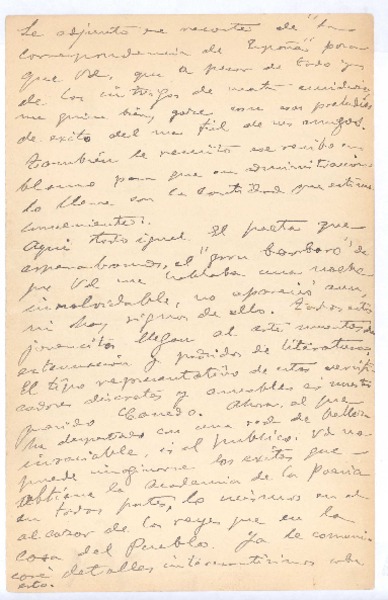 Le adjunto un recorte de "La
Correspondencia de España" para
que Vd., que a pesar de todo y
de las intrigas de mala
me quiere bien, goce con sus
de éxito del mas fiel de sus amigos.
También le remito un recibo en
blanco para que en administración
lo llene con la cantidad que estime
conveniente.
Aquí todo igual. El poeta que
esperabamos, el "gran bárbaro" de
que Vd. me hablaba una noche
inolvidable, no apareció aun,
ni hay signos de ello. Todos estos
jovencitos llegan al arte muertos de
extenuación y podridos de literatura.
El tipo representativo de estos versifi-
cadores discretos y amables es nuestro
querido Canedo. Ahora, el que
ha despertado con una sed de belleza
insaciable, es el público. Vd. no
puede imaginarse los exitos que
obtiene la Academia de la Poesía
en todas partes, lo mismo en el
alcazar de los reyes que en la
Casa del Pueblo. Ya le comuni-
caré detalles interesantisimos sobre
esto.